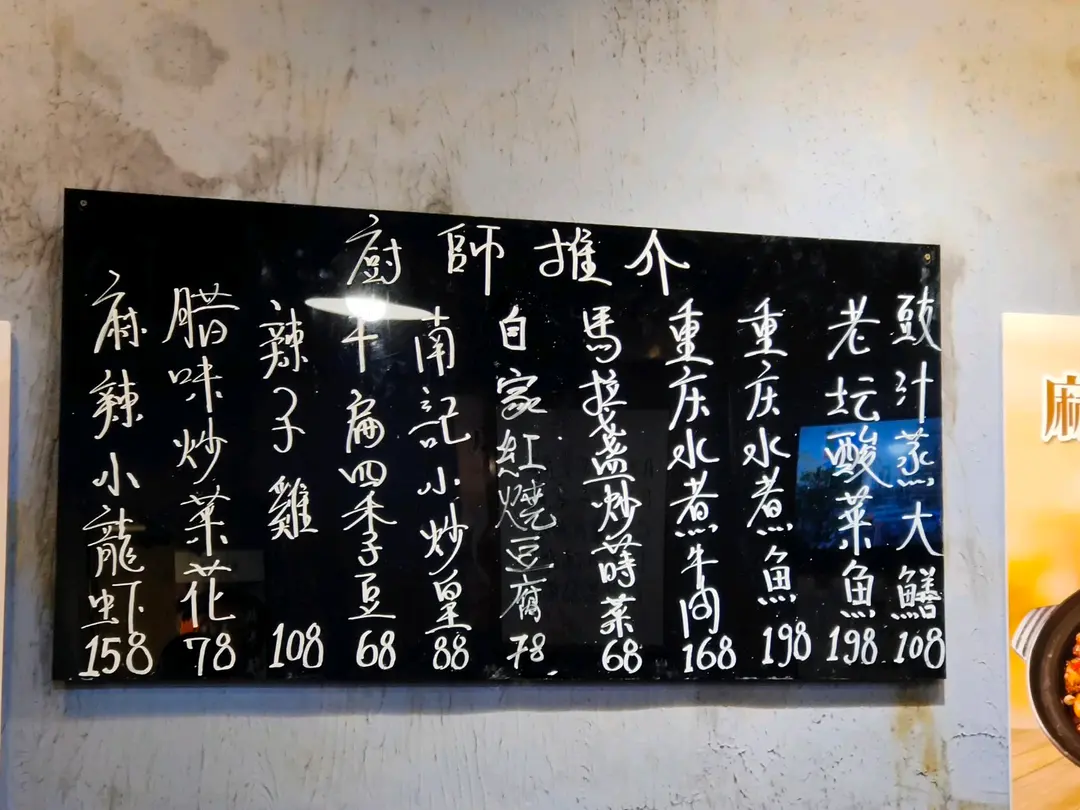 廚師推介
豉汁蒸大鱔 108
老坛酸菜魚 198
重庆水煮魚 198
重庆水煮牛肉 168
馬拉盞炒蒔菜 68
自家紅燒豆腐 78
南記小炒皇 88
干扁四季豆 68
辣子雞 108
腊味炒菜花 78
麻辣小龍虾 158
麻